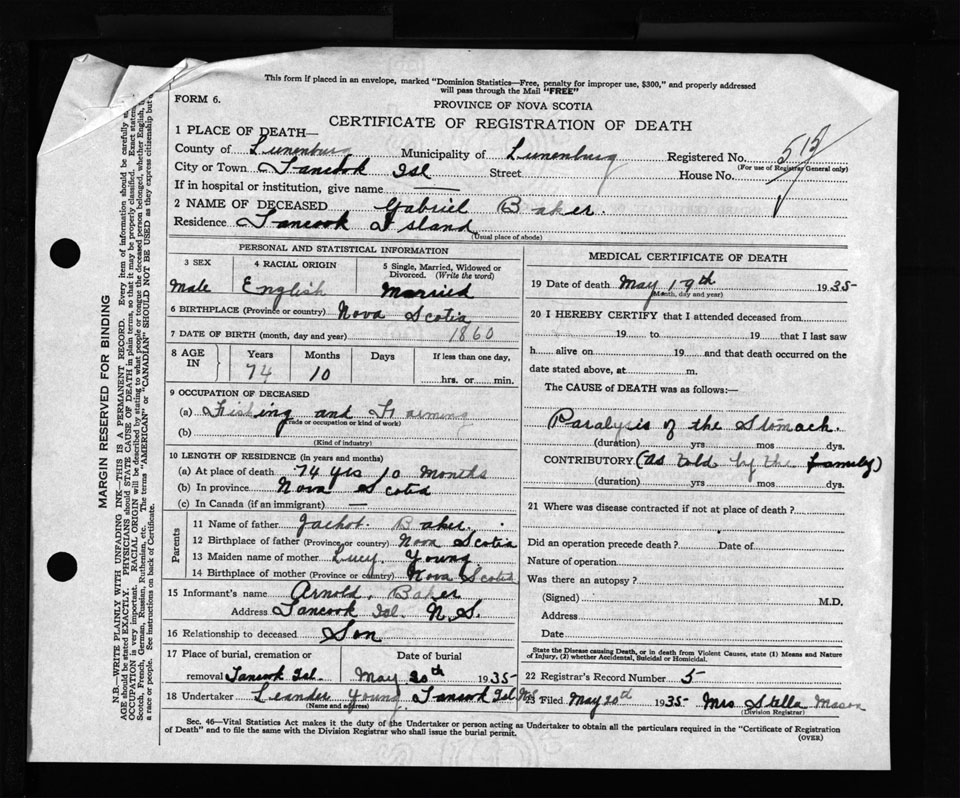 This form if placed in an envelope, marked "Dominion Statistics—Free, penalty for improper use, $300," and properly addressed
will pass through the Mail "FREE"
FORM 6.
PROVINCE OF NOVA SCOTIA
CERTIFICATE OF REGISTRATION OF DEATH
1 PLACE OF DEATH—
County of Lunenburg Municipality of Lunenburg Registered No. 512
(For use of Registrar General only)
City or Town Tancook Isl Street House No.
If in hospital or institution, give name —
2 NAME OF DECEASED Gabriel Baker.
Residence Tancook Island
(Usual place of abode)
PERSONAL AND STATISTICAL INFORMATION
3 SEX 4 RACIAL ORIGIN 5 Single, Married, Widowed or Divorced. (Write the word)
Male English Married
6 BIRTHPLACE (Province or country) Nova Scotia
7 DATE OF BIRTH (month, day and year) 1860
8 AGE IN Years Months Days If less than one day,
74 10 hrs. or min.
9 OCCUPATION OF DECEASED
(a) Fishing and Farming
(Trade or occupation or kind of work)
(b)
(Kind of industry)
10 LENGTH OF RESIDENCE (in years and months)
(a) At place of death 74 yrs 10 Months
(b) In province Nova Scotia
(c) In Canada (if an immigrant) —
Parents
11 Name of father Baker.
12 Birthplace of father (Province or country) Nova Scotia
13 Maiden name of mother Lucy Young
14 Birthplace of mother (Province or country) Nova Scotia
15 Informant's name Arnold. Baker
Address Tancook Isl. N.S.
16 Relationship to deceased Son
17 Place of burial, cremation or Date of burial
removal Tancook Isl. May 20th 1935
18 Undertaker Leander Young, Tancook Isl N.S
(Name and address)
MEDICAL CERTIFICATE OF DEATH
19 Date of death May 19th 1935
(Month, day and year)
20 I HEREBY CERTIFY that I attended deceased from
19 to 19 that I last saw
h alive on 19 and that death occurred on the
date stated above, at m.
The CAUSE of DEATH was as follows:—
Paralysis of the Stomach.
(duration) yrs mos dys.
CONTRIBUTORY (As told by the family)
(duration) yrs mos dys.
21 Where was disease contracted if not at place of death?
Did an operation precede death? Date of
Nature of operation
Was there an autopsy?
(Signed) M.D.
Address
Date
State the Disease causing Death, or in death from Violent Causes, state (1) Means and Nature
of Injury, (2) whether Accidental, Suicidal or Homicidal.
22 Registrar's Record Number 5
23 Filed May 20th 1935 Mrs Stella Mason
(Division Registrar)
Sec. 46—Vital Statistics Act makes it the duty of the Undertaker or person acting as Undertaker to obtain all the particulars required in the "Certificate of Registration
of Death" and to file the same with the Division Registrar who shall issue the burial permit.
(OVER)
MARGIN RESERVED FOR BINDING
N.B.—WRITE PLAINLY WITH UNFADING INK—THIS IS A PERMANENT RECORD. Every item of information should be carefully
AGE should be stated EXACTLY. PHYSICIANS should STATE CAUSE OF DEATH in plain terms, so that it may be properly classified. Exact
OCCUPATION is very important. RACIAL ORIGIN will be described by stating to what people or tongue the deceased person belonged, whether English,
Scotch, French, German, Russian, Ruthenian, etc. The terms "AMERICAN" or "CANADIAN" SHOULD NOT BE USED as they express citizenship but
a race or people. See instructions on back of Certificate.